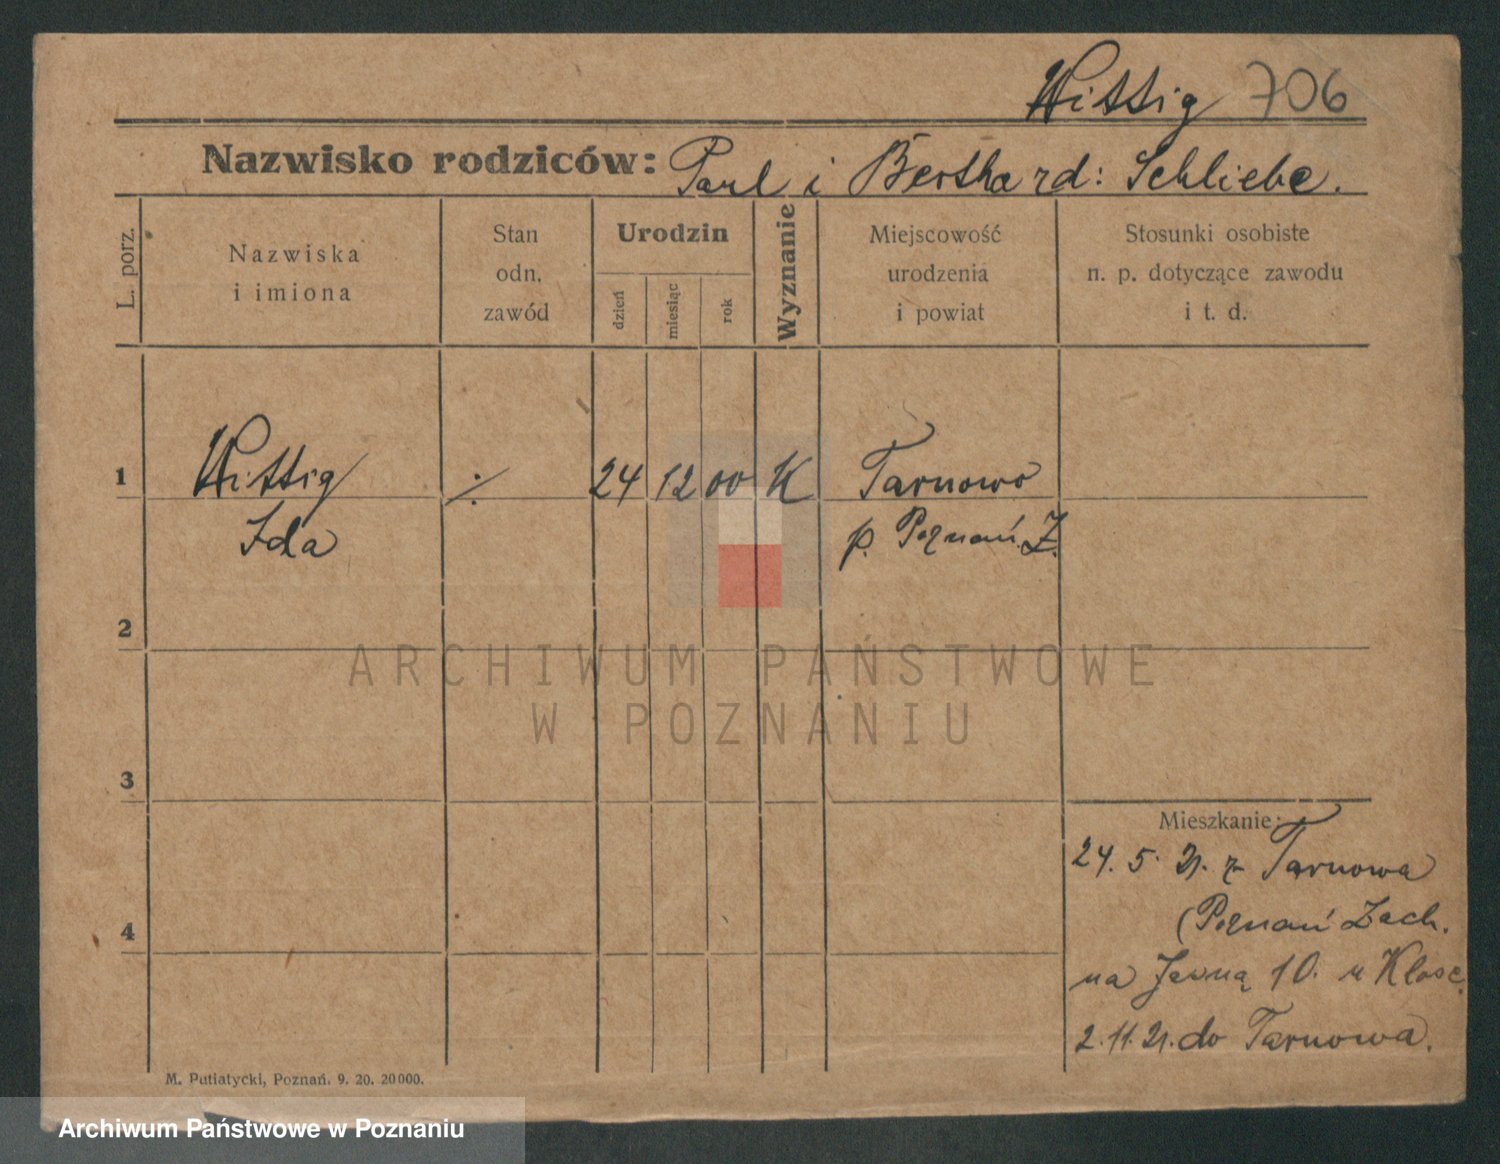 Wittig 706
Nazwisko rodziców: Paul i Bertha rd: Schliebe.
L. porz.
Nazwiska
i imiona
Stan
odn.
zawód
Urodzin
dzień
miesiąc
rok
Wyznanie
Miejscowość
urodzenia
i powiat
Stosunki osobiste
n. p. dotyczące zawodu
i t. d.
1 Wittig ./. 24 12 00 K Tarnowo
Ida p. Poznań Z.
2
3
4
Mieszkanie:
24. 5. 21. z Tarnowa
(Poznań Zach.
na Jasną 10. u Klose.
2. 11. 21. do Tarnowa.
M. Putiatycki, Poznań. 9. 20. 20000.
ARCHIWUM PAŃSTWOWE
W POZNANIU
Archiwum Państwowe w Poznaniu